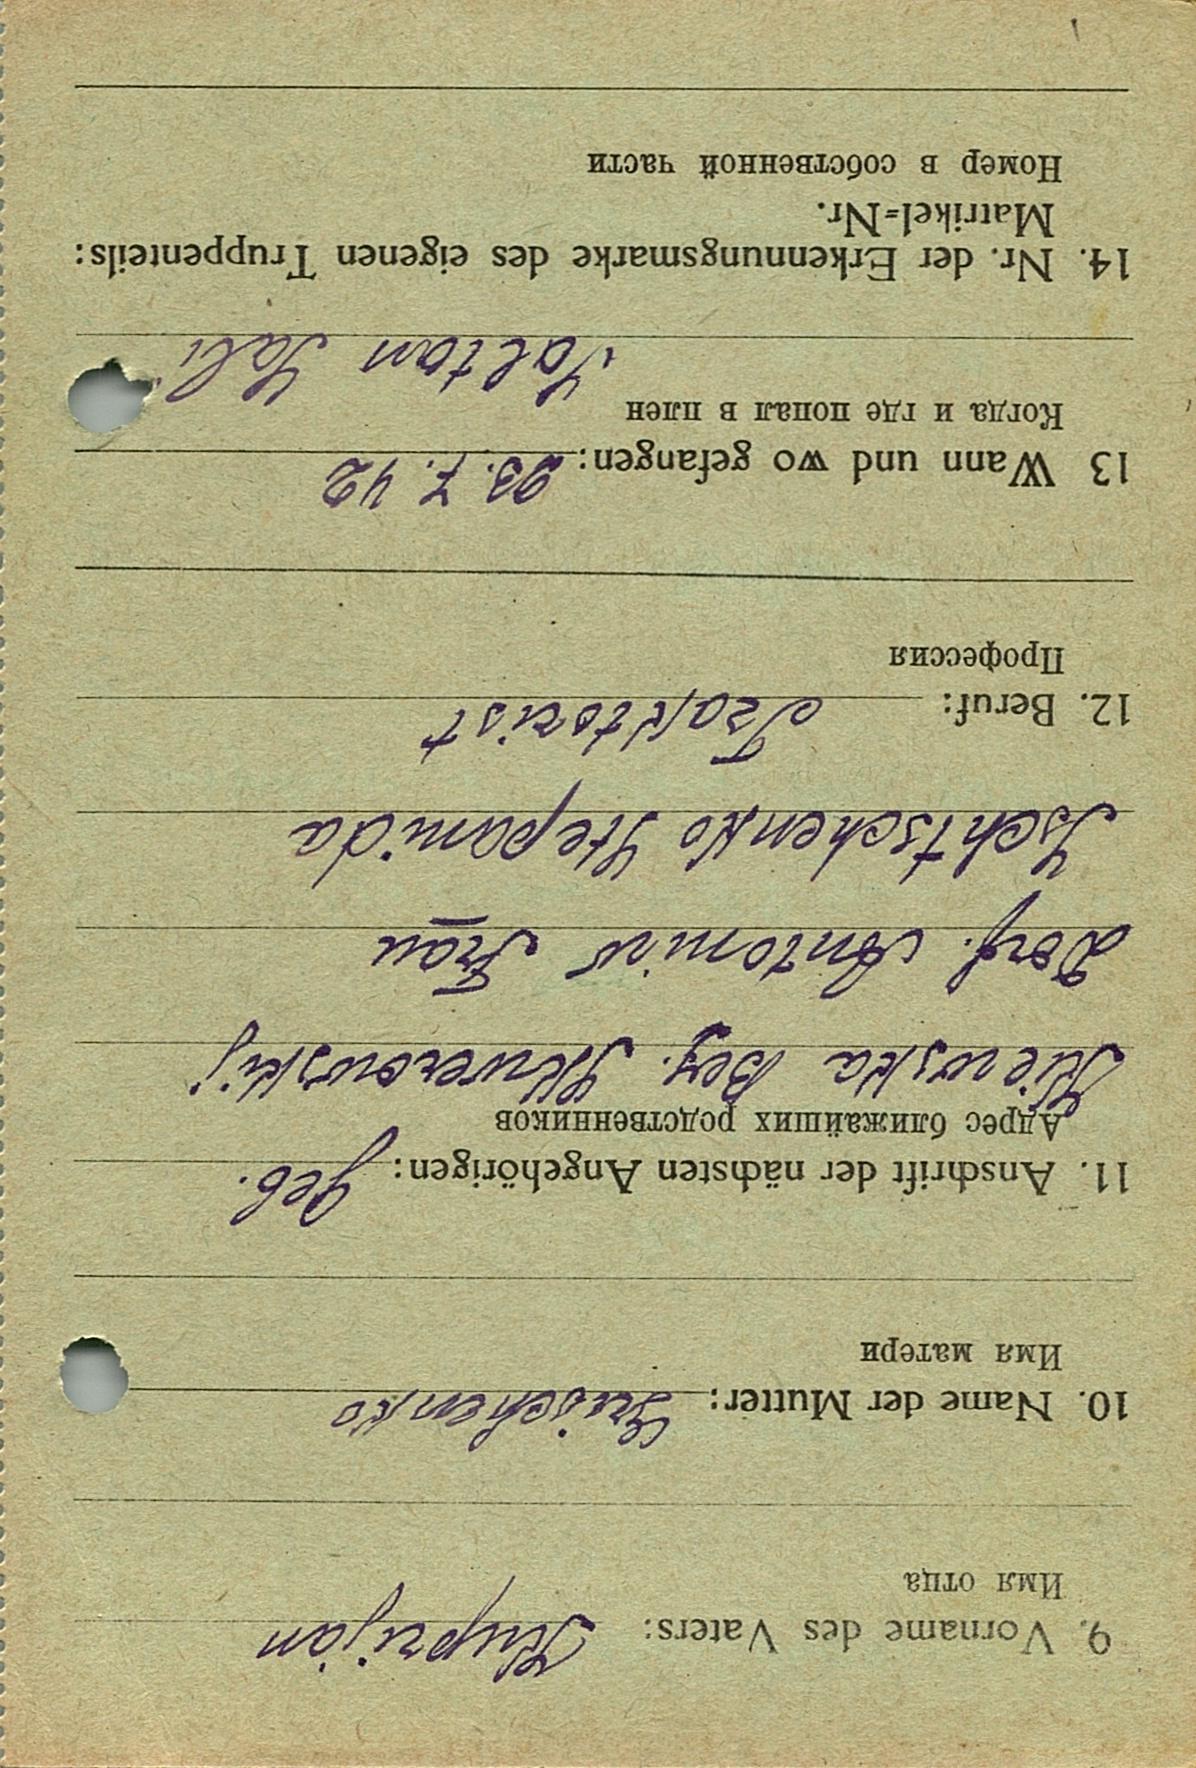 9. Vorname des Vaters: Kuprijan
Имя отца
10. Name der Mutter: Grischenko
Имя матери
11. Anschrift der nächsten Angehörigen: Geb.
Адрес ближайших родственников
Kiewska Bez. Skwerowskij
Dorf. Antoniw Frau
Ischtschenko Stepanida
12. Beruf: Traktorist
Профессия
13 Wann und wo gefangen: 23. 7. 42
Когда и где попал в плен
Saltan Sali
14. Nr. der Erkennungsmarke des eigenen Truppenteils:
Matrikel=Nr.
Номер в собственной части